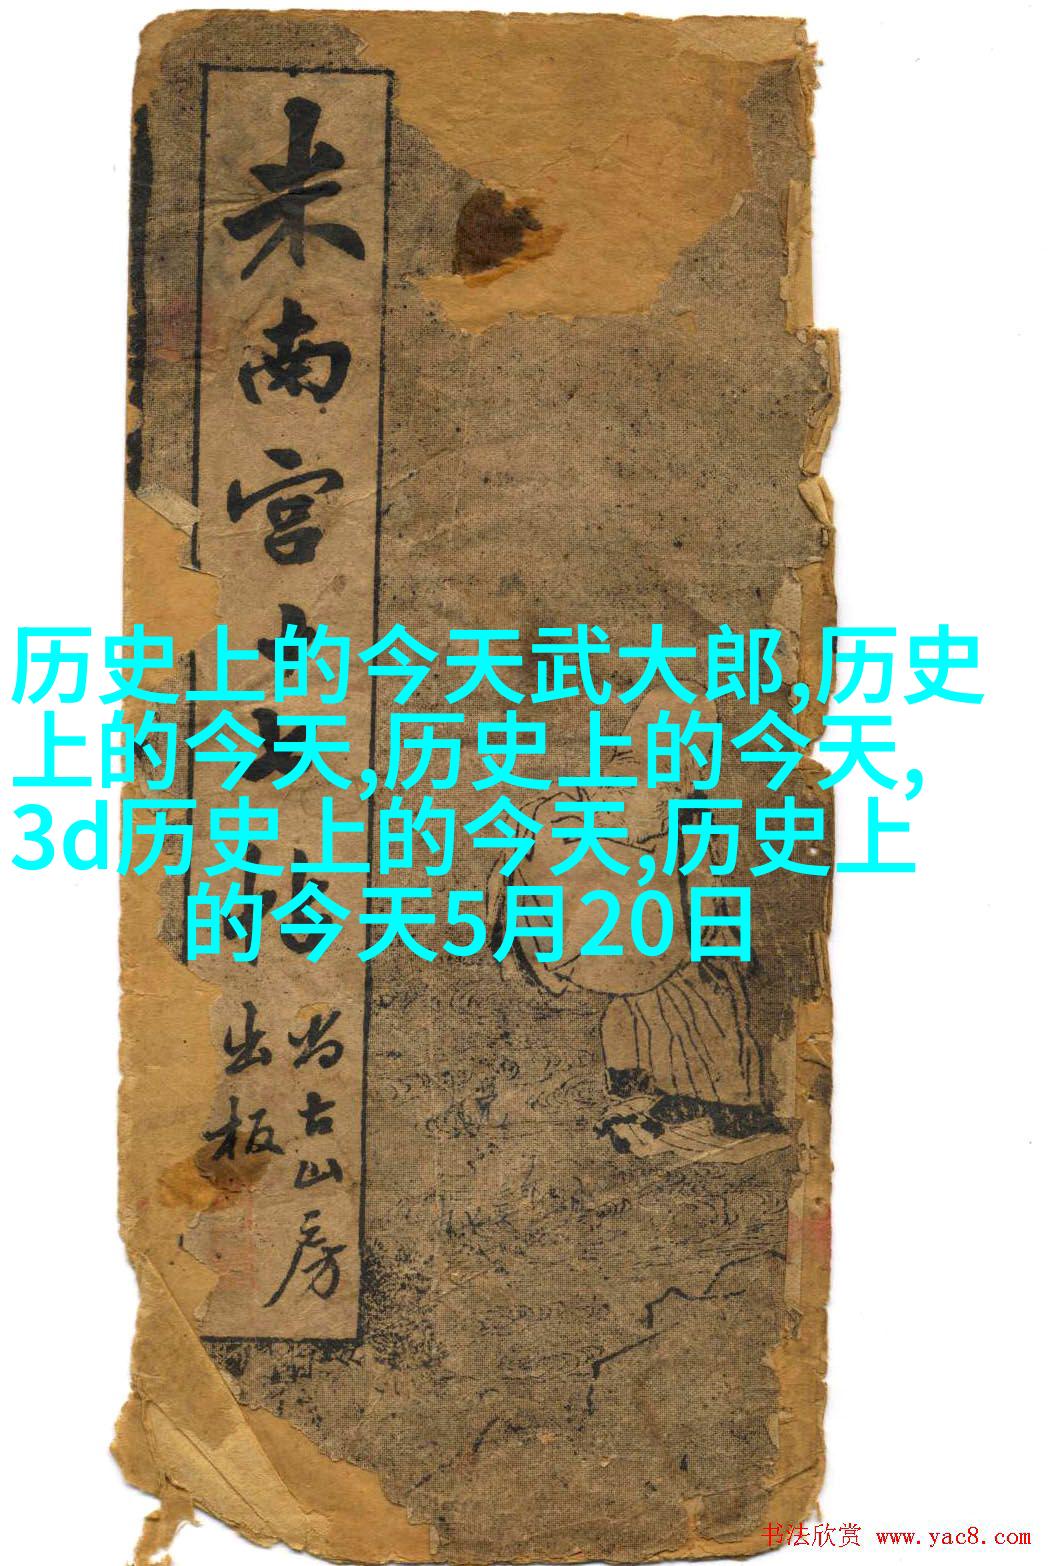 米南宫十七帖
尚古山房
出板
历史上的今天武大郎,历史
上的今天,历史上的今天,
3d历史上的今天,历史上
的今天5月20日
书法欣赏 www.yac8.com